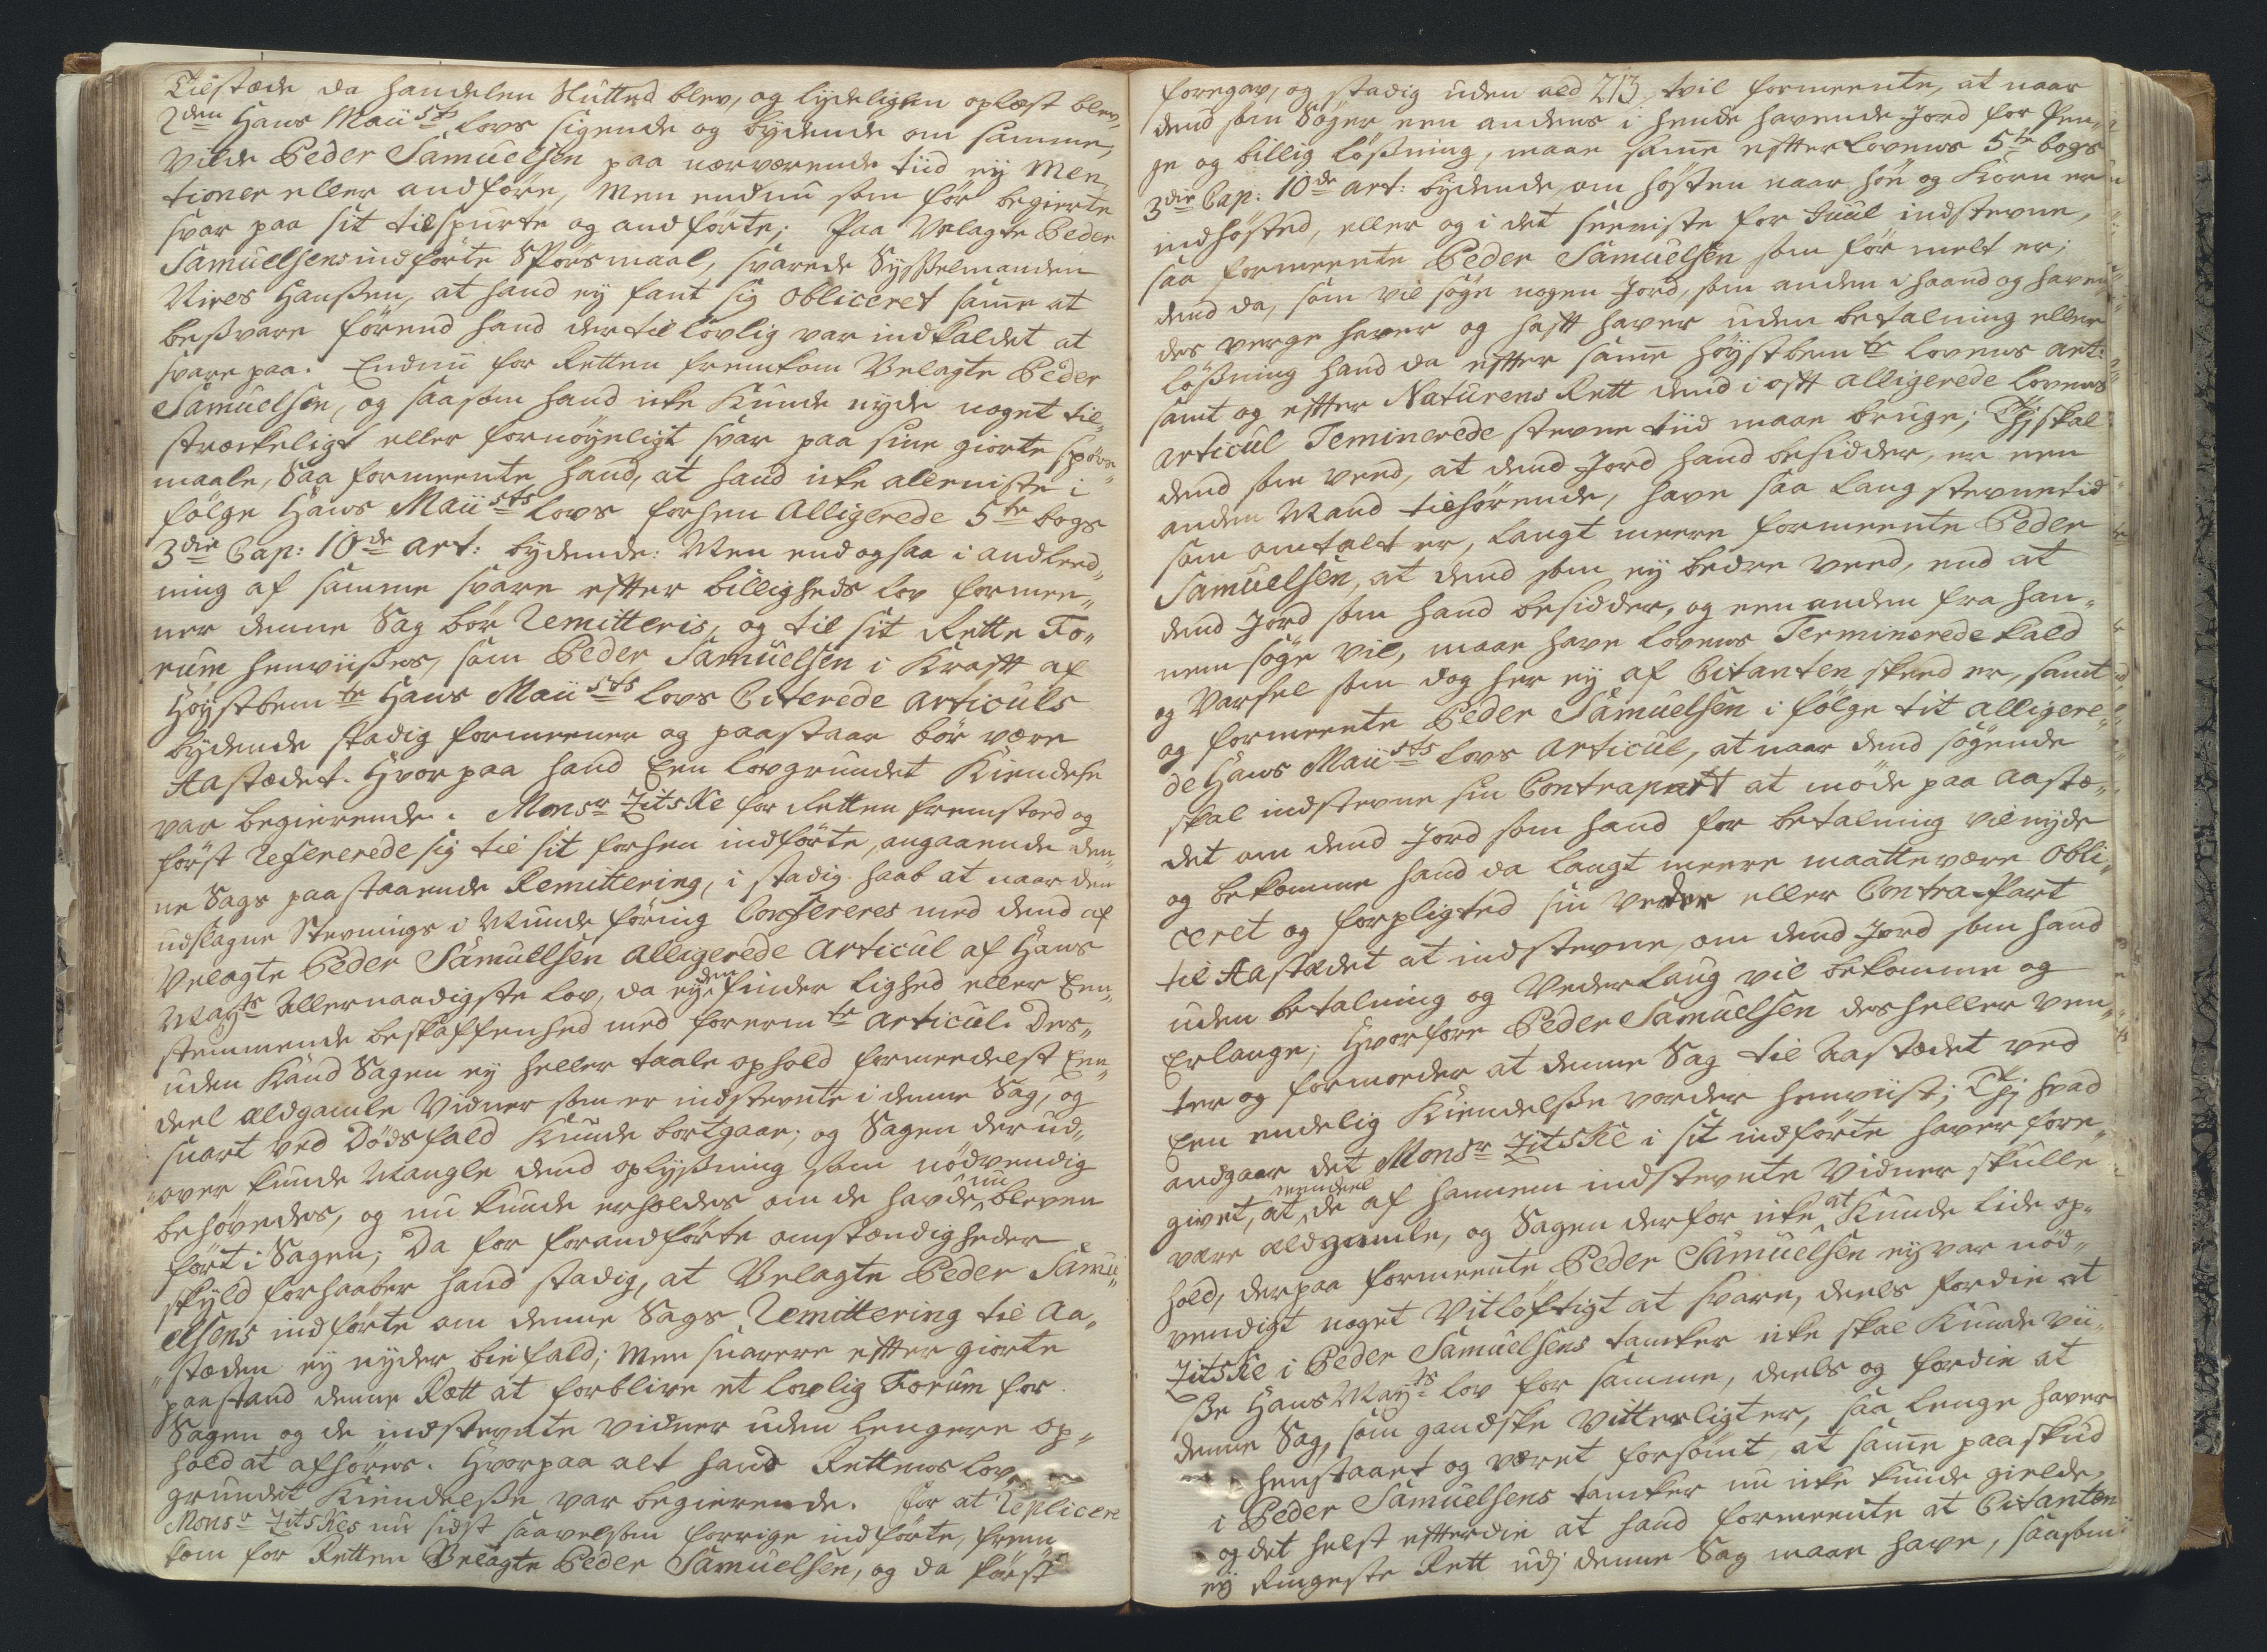 Tilstæde da handelen Sluttad blev, og lydeligen oplæst blev,
2den Hans Maÿsts lovs sigende og bydende om samme,
Vilde Peder Samuelsen paa nærværende tiid eÿ Men„
tioner eller andføre, Men endnu som før begierte
svar paa sit tilspurte og andførte; Paa Velagte Peder
Samuelsens indførte Spørsmaal, svarede Sysselmanden
Niels Hanssen, at hand eÿ fant sig obliceret samme at
besvare førend hand dertil lovlig var indkaldet at
svare paa. Endnu for Retten fremkom Velagte Peder
Samuelsen, og saasom hand icke Kunde nyde noget til„
strækeligt eller fornøyeligt svar paa sine giorte spørs„
maale, Saa formeente hand, at hand icke alleniste i
følge Hans Maÿsts lovs forhen Alligerede 5te bogs
3die Cap: 10de Art: bydende: Men endogsaa i andleed„
ning af samme svare effter billigheds lov formee„
ner denne Sag bør Remitteris, og til sit Rette Fo„
rum henviises, som Peder Samuelsen i Krafft af
Høystbemte Hans Maÿsts lovs Citerede Articuls
bydende stadig formeener og paastaar bør være
Aastædet. Hvorpaa hand Een lovgrundet Kiendelse
var begierende. Monsr Zitske for Retten fremstoed og
først Refererede sig til sit forhen indførte, angaaende den„
ne Sags paastaaende Remittering, i stadig haab at naar den
udslagne Stevnings i Munde føring Confereres med dend af
Velagte Peder Samuellsen Alligerede Articul af Hans
Mayts Allernaadigste lov, da eÿ den finder lighed eller Een„
stemmende beskaffenhed med forermte Articul. Des„
uden Kand Sagen eÿ heller taale ophold formedelst Een„
deel Eldgamle Vidner som er indstevnte i denne Sag, og
snart ved Dødsfald Kunde bortgaae, og Sagen derud„
over kunde Mangle dend oplysning som nødvendig
behøvedes, og nu kunde erholdes om de havde nu bleven
ført i Sagen; Da for forandførte omstændigheder
skyld forhaaber hand stadig, at Velagte Peder Samu„
elsens indførte om denne Sags Remittering til Aa„
stæden eÿ nyder biefald; Men snarere effter giorte
paastand denne Rett at forblive et lovlig Forum for
Sagen og de indstevnte vidner uden lengere op„
hold at afhøres. Hvorpaa alt hand Rettens lov
grundet Kiendelse var begierende. For at Replicere
Monsr Zitskes nu sidst saavelsom forrige indførte, frem
kom for Retten Velagte Peder Samuelsen, og da først
213
foregav, og stadig uden ald tvil formeente, at naar
dend som Søger een andens i hende havende Jord for Pen„
ge og billig løsning, maae samme effter lovens 5te bogs
3die Cap: 10de Art: bydende om høsten naar høe og Korn er
indhøsted, eller og i det seeniste for Juul indstevne,
saa formeente Peder Samuelsen som før melt er;
dend da, som vil søge nogen Jord, som anden i haand og haven„
des verge haver og hafft haver uden betalning eller
løsning hand da effter samme høystbemte lovens Art:
samt og effter Naturens Rett dend i offt Alligerede lovens
Articul Teminerede stevne tiid maae bruge; Thj skal
dend som veed, at dend Jord hand besidder, er een
anden Mand tilhørende, have saa lang stevnetid
som omtalt er, langt meere formeente Peder
Samuelsen, at dend som eÿ bedre veed, end at
dend Jord som hand besidder, og een anden fra han„
nem søge vil, maae have lovens Terminerede kald
og Varsel som dog her eÿ af Citanten skeed er, samt
og formeente Peder Samuelsen i følge tit alligere„
de Hans Maÿsts lovs Articul, at naar dend søgende
skal indstevne sin Contrapartt at møde paa Aastæ„
det om dend Jord som hand for betalning vil nyde
og bekomme hand da langt meere maatte være obli„
ceret og forpligted sin Veder eller Contra-Part
til Aastædet at indstevne, om dend Jord som hand
uden betalning og Vederlaug vil bekomme og
Erlange; Hvorfore Peder Samuelsen desheller ven„
ter og formoeder at denne Sag til Aastædet ved
Een endelig Kiendelse vorder henviist; Thj hvad
andgaar det Monsr Zitske i sit indførte haver fore„
givet, at eendeel de af hannem indstevnte Vidner skulle
være Eldgamle, og Sagen derfor icke at Kunde lide op„
hold, derpaa formeente Peder Samuelsen eÿ var nød„
vendigt noget Vitløftigt at svare, deels fordie at
Zitske i Peder Samuelsens tancker icke skal Kunde vii„
se Hans Mayts lov for samme, deels og fordie at
denne Sag, som gandske Vitterligt er, saa lenge haver
henstaaet og været forsømt, at samme paaskud
i Peder Samuelsens tancker nu icke kunde gielde,
og det helst effterdie at hand formeente at Citanten
eÿ Ringeste Rett udj denne Sag maae have, saasom